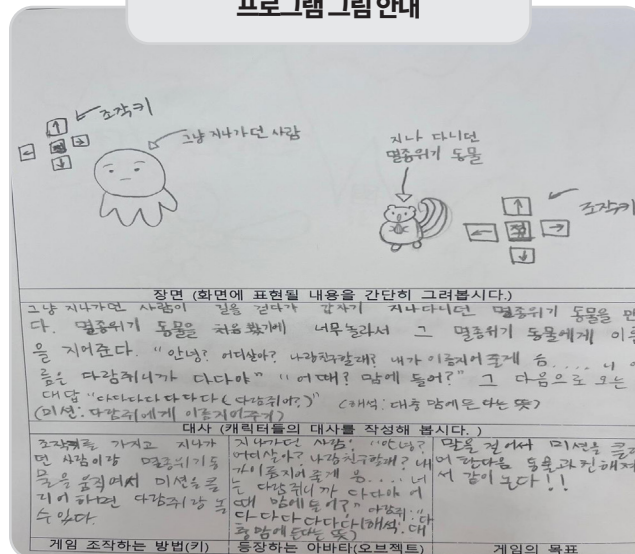 프로그램 그림 안내
조작키
그냥 지나가던 사람
지나 다니던
멸종위기 동물
조작키
장면 (화면에 표현될 내용을 간단히 그려봅시다.)
그냥 지나가던 사람이 길을 걷다가 갑자기 지나다니던 멸종위기 동물을 만
다. 멸종위기 동물을 처음 봤기에 너무 놀라서 그 멸종위기 동물에게 이름
을 지어준다. "안녕? 어디살아? 나랑친구할래? 내가 이름지어 줄게 음.... 너 이
름은 다람쥐니까 다다야" "어때? 맘에 들어?" 그 다음으로 오는
대답 "다다다다다다다(다람쥐어?)" (해석: 대충 맘에 든다는 뜻)
(미션: 다람쥐에게 이름지어주기)
대사 (캐릭터들의 대사를 작성해 봅시다. )
조작키를 가지고 지나가
던 사람이랑 멸종위기동
물을 움직여서 미션을 클
리어 하면 다람쥐랑 놀
수 있다.
지나가던 사람: "안녕?
어디살아? 나랑친구할래? 내
가 이름지어줄게 음.... 너
는 다람쥐니까 다다야 어
때 맘에들어?" 다람쥐: "다
다다다다다(해석: 대
충 맘에든다는 뜻)
말을 걸어서 미션을 클리
어 한다음 동물과 친해져
서 같이 논다!!
게임 조작하는 방법(키)
등장하는 아바타(오브젝트)
게임의 목표